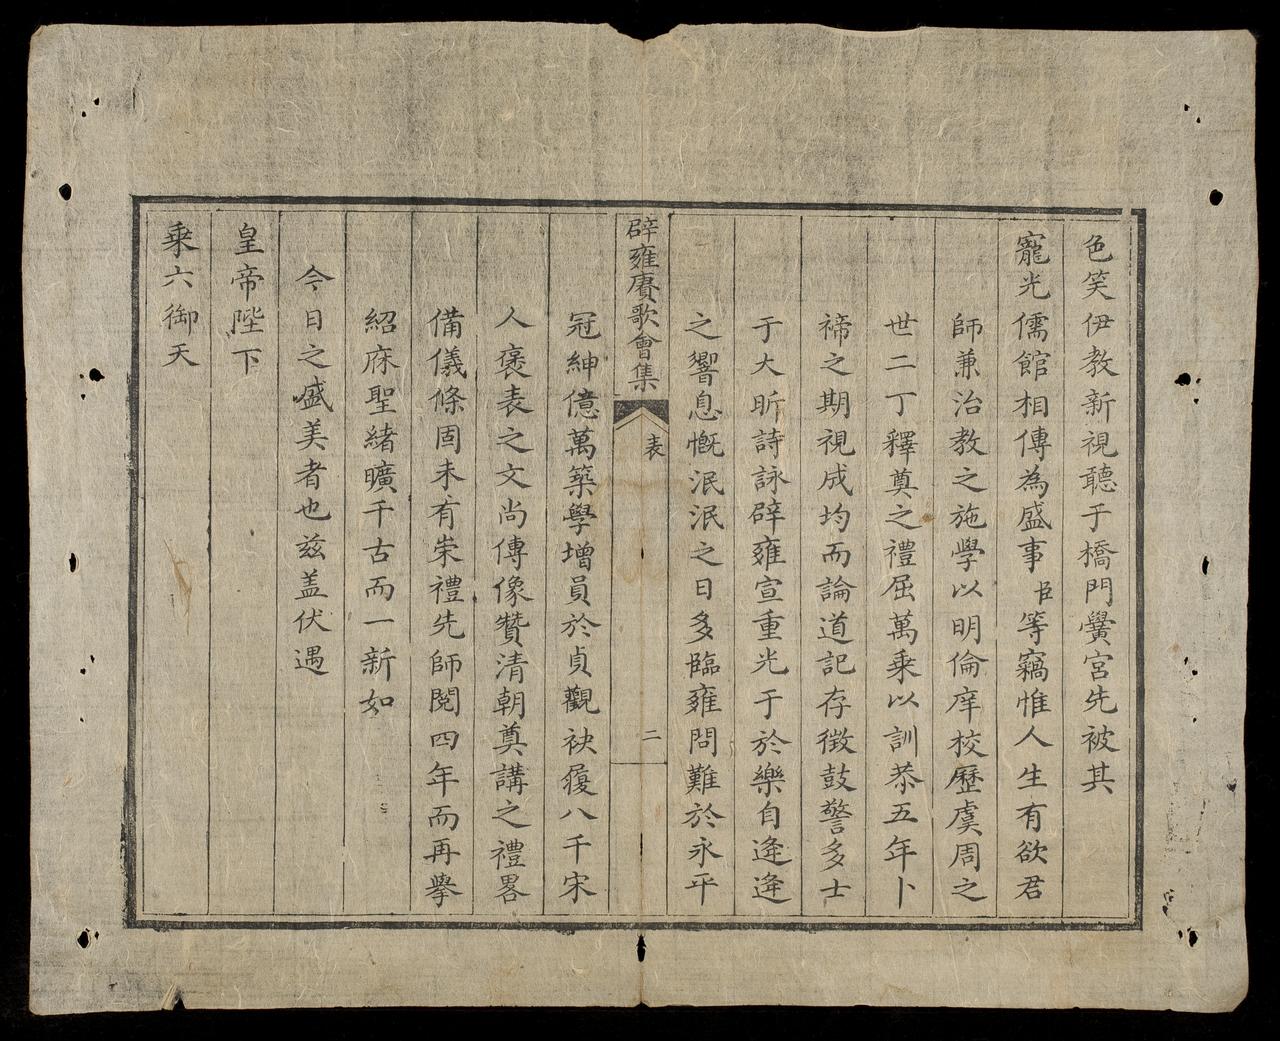 色笑伊教新視聽于橋門黌宮先被其
寵光儒館相傳為盛事臣等竊惟人生有欲君
師兼治教之施學以明倫庠校歷虞周之
世二丁釋奠之禮屈萬乘以訓恭五年卜
禘之期視成均而論道記存徵鼓警多士
于大昕詩詠辟雍宣重光于於樂自逄逄
之響息慨泯泯之日多臨雍問難於永平
辟雍賡歌會集
表
二
冠紳億萬築學增員於貞觀袂履八千宋
人褒表之文尚傳像贊清朝奠講之禮畧
備儀條固未有崇禮先師閱四年而再舉
紹庥聖緒曠千古而一新如
今日之盛美者也兹盖伏遇
皇帝陛下
乘六御天